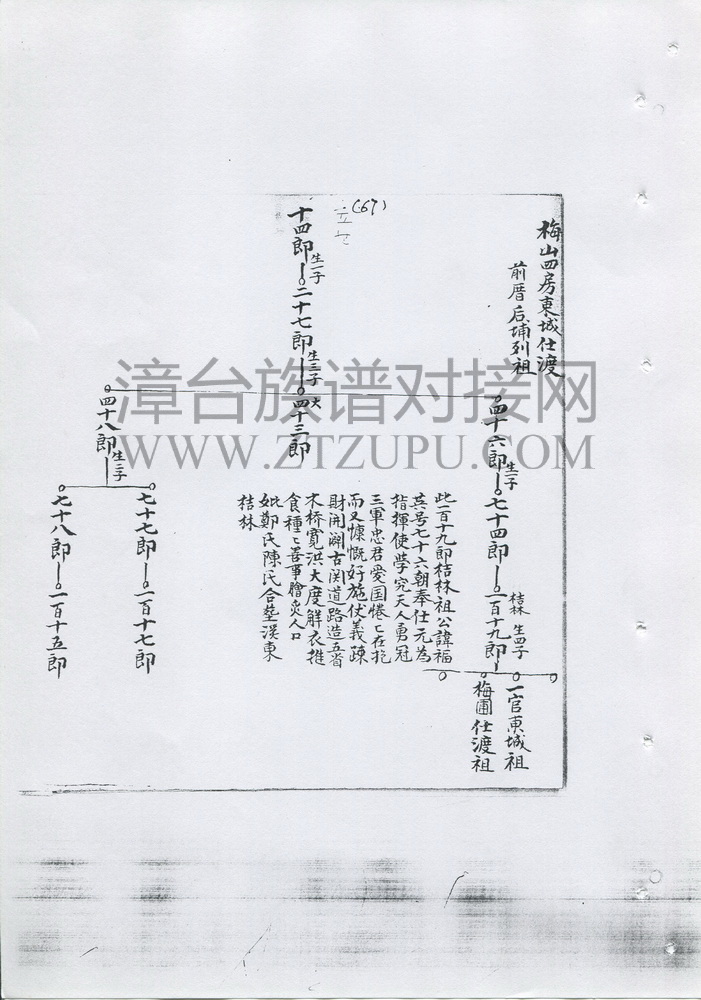 梅山四房東城仕渡
前厝后埔列祖
(67)
十四郎
生一子
二十七郎
生三子
四十六郎
生一子
七十四郎
一百十九郎
桔林
生四子
一官東城祖
梅圃仕渡祖
大
四十三郎
四十八郎
生二子
七十七郎
一百十七郎
七十八郎
一百十五郎
此一百十九郎桔林祖公諱福
其号七十六朝奉仕元為
指揮使學究天人勇冠
三軍忠君愛国惓〻在抱
而又慷慨好施仗義疎
財開闢古関道路造五省
木桥寬洪大度解衣推
食種〻善事膾炙人口
妣鄭氏陳氏合塟渓東
桔林
漳台族谱对接网
WWW.ZTZUPU.COM